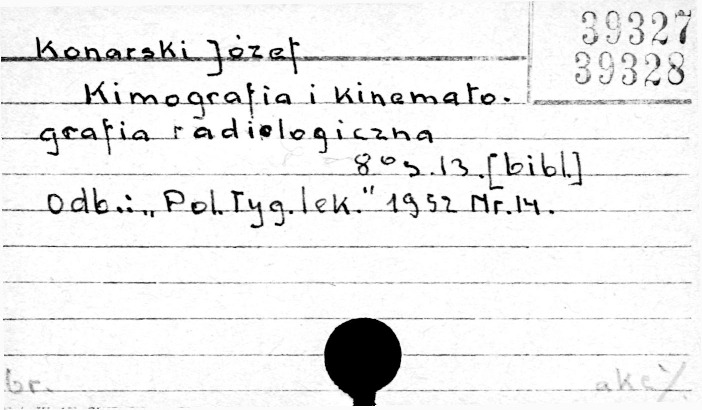 39327
39328
Konarski Józef
Kimografia i kinemato-
grafia radiologiczna
8° s.13.[bibl.]
Odb.: „Pol.Tyg.lek." 1952 Nr.14.
br.